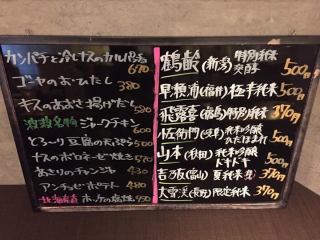 カンパチと冷しナスのカルパッチョ 670
ゴーヤのおひたし 380
キスのあおさ揚げだし 580
波設名物 ジャークチキン 600
とろ～り豆腐の天ぷら 500
ナスのボロネーゼ焼き 570
あさりのチャンジャ 430
アンチョビポテト 480
北海道産 ホッケの塩焼 950
鶴齢(新潟) 特別純米 発酵 500円
早瀬浦(福井) 純米 500円
飛露喜(福島) 特別純米 370円
佐衛門 純米吟醸 500円
山本(秋田) 純米吟醸 ドキドキ 500円
吉乃友(富山) 夏純米 370円
大雪渓(長野) 限定純米 370円